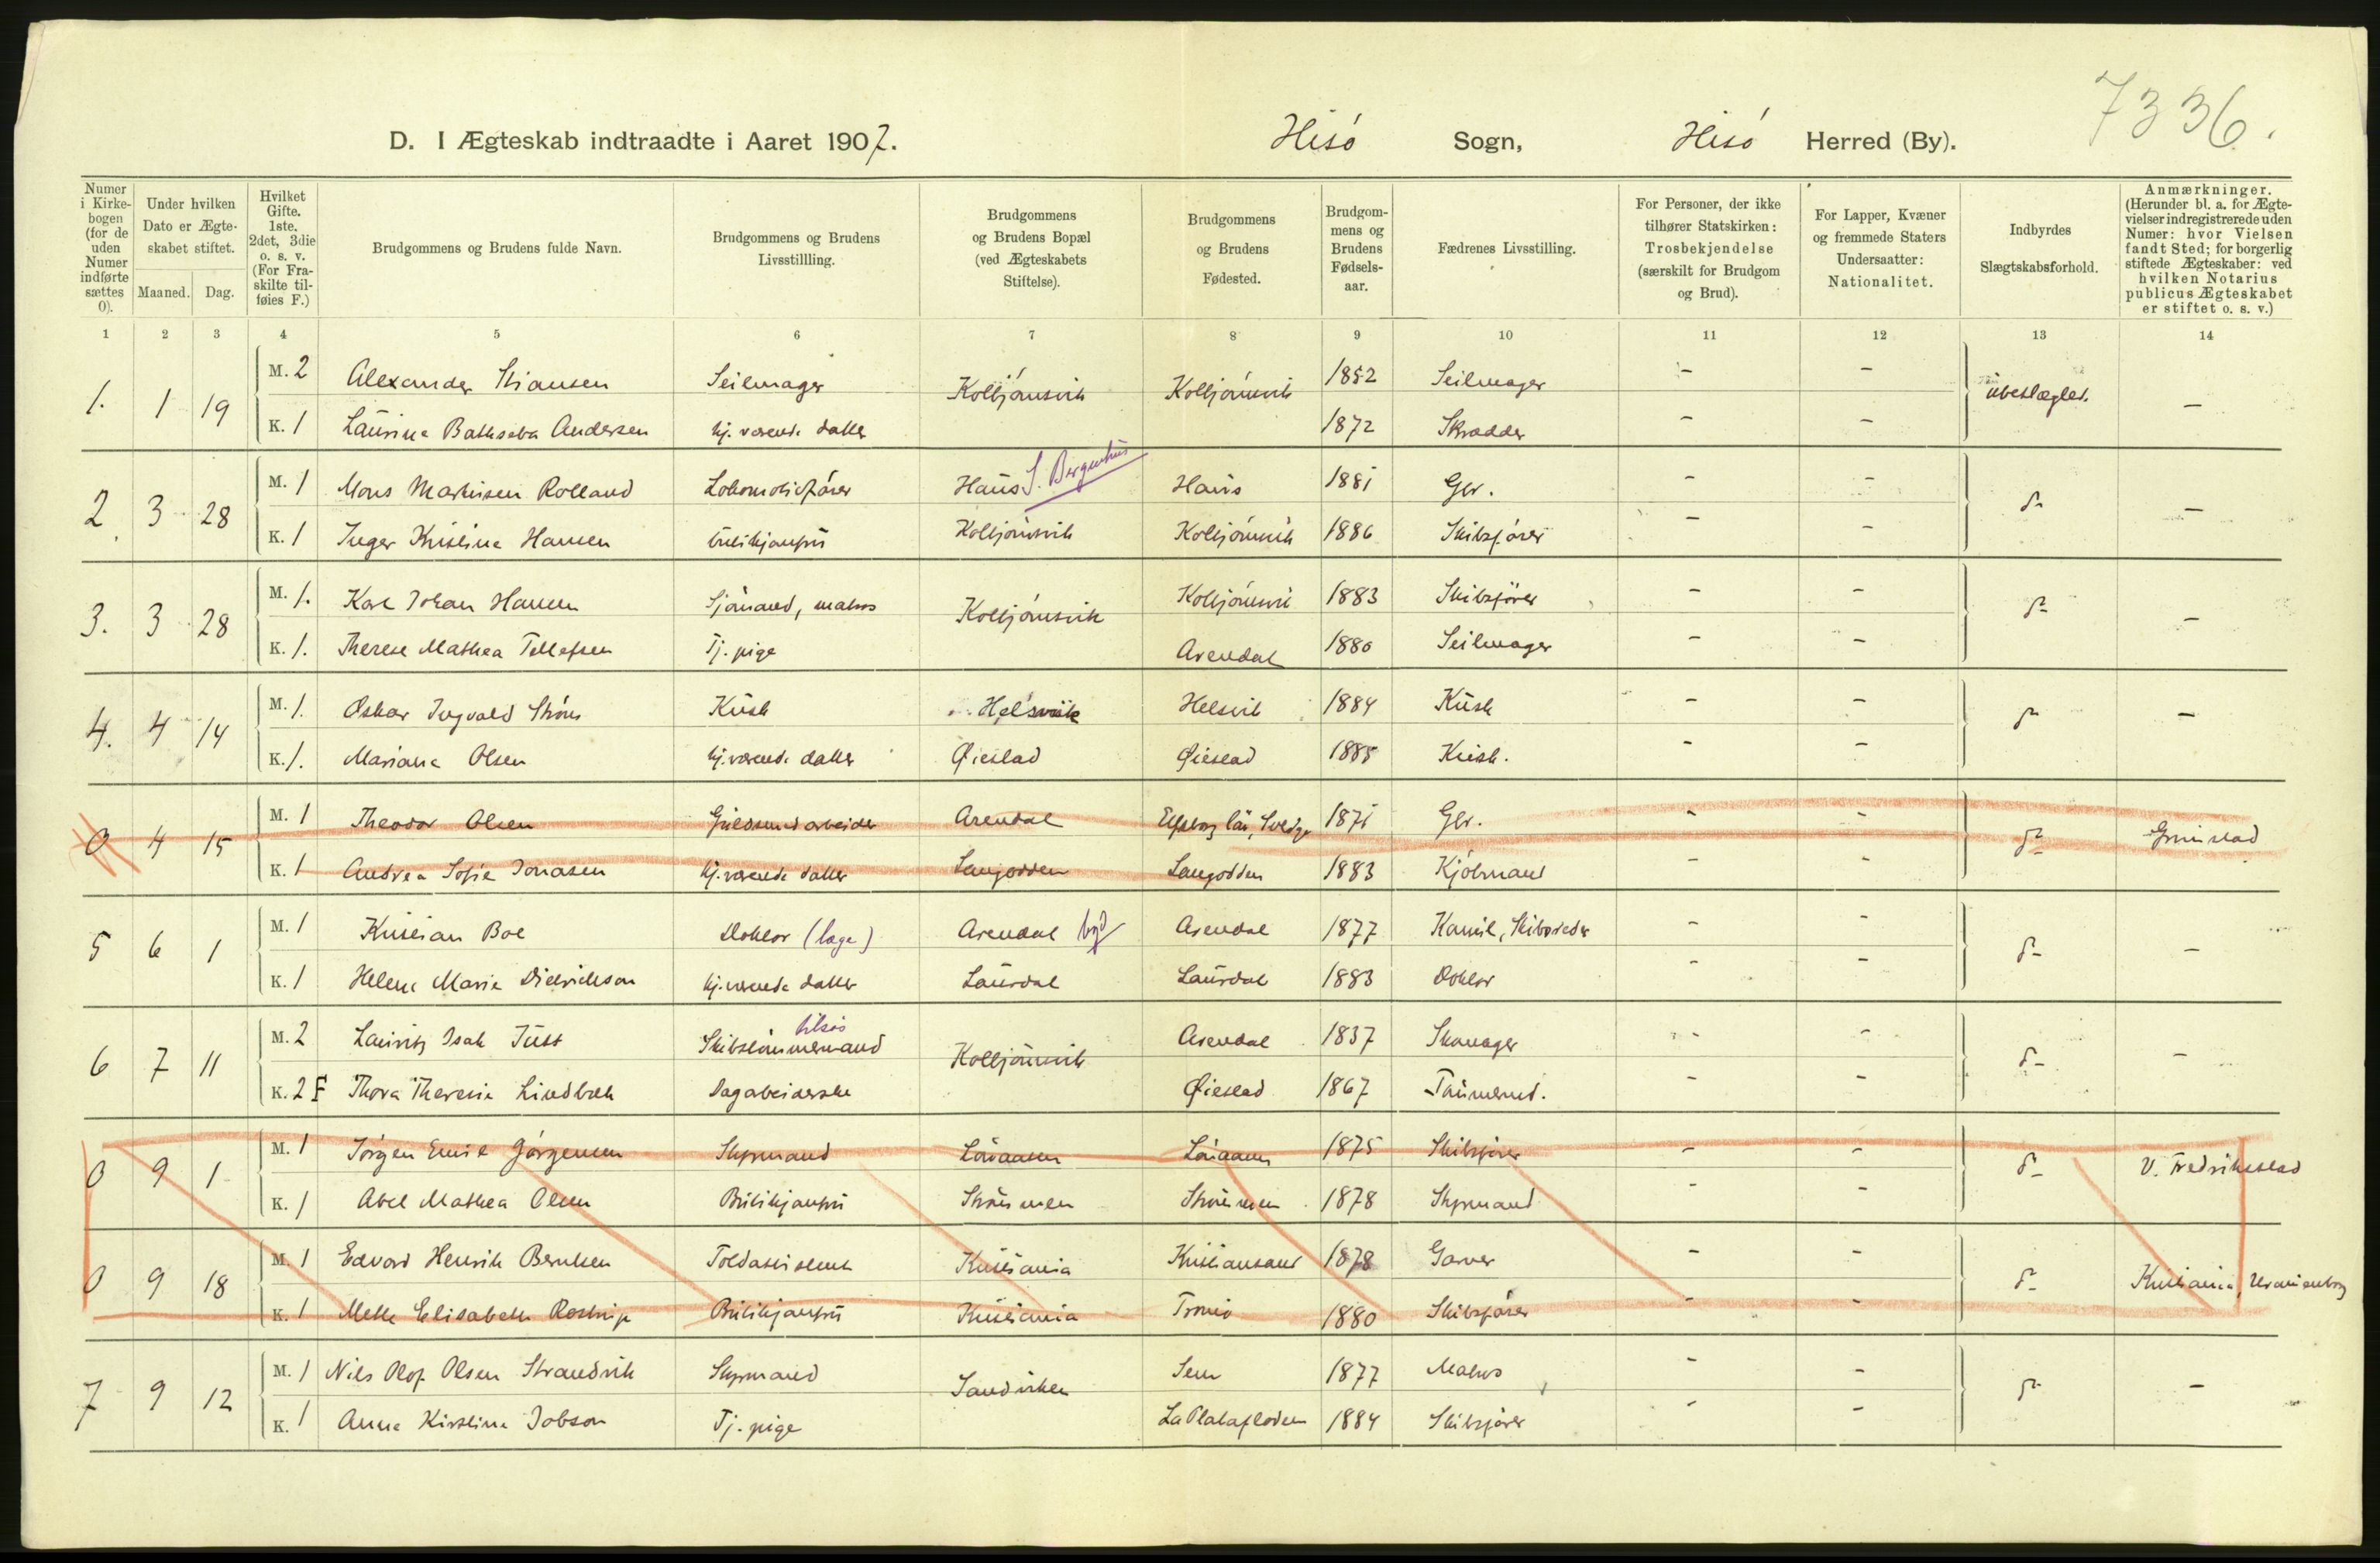 7336.
D. I Ægteskab indtraadte i Aaret 1907. Hisö Sogn, Hisö Herred (By).
Numer i Kirkebogen (for de uden Numer indførte sættes 0).
Under hvilken Dato er Ægteskabet stiftet.
Maaned. Dag.
Hvilket Gifte. 1ste. 2det, 3die o. s. v. (For Fraskilte tilføies F.)
Brudgommens og Brudens fulde Navn.
Brudgommens og Brudens Livsstillling.
Brudgommens og Brudens Bopæl (ved Ægteskabets Stiftelse).
Brudgommens og Brudens Fødested.
Brudgommens og Brudens Fødselsaar.
Fædrenes Livsstilling.
For Personer, der ikke tilhører Statskirken: Trosbekjendelse (særskilt for Brudgom og Brud).
For Lapper, Kvæner og fremmede Staters Undersaatter: Nationalitet.
Indbyrdes Slægtskabsforhold.
Anmærkninger. (Herunder bl. a. for Ægtevielser indregistrerede uden Numer: hvor Vielsen fandt Sted; for borgerlig stiftede Ægteskaber: ved hvilken Notarius publicus Ægteskabet er stiftet o. s. v.)
1 2 3 4 5 6 7 8 9 10 11 12 13 14
1. 1 19 M. 2 Alexander Stiansen Seilmager Kolbjörnsvik Kolbjörnsvik 1852 Seilmager - - ubeslægtet. -
K. 1 Laurine Bathseba Andersen hj. værende datter 1872 Skrædder - -
2. 3 28 M. 1 Mons Markusen Rolland Lokomotivförer Haus S. Bergenhus Haus 1881 Gbr. - - d- -
K. 1 Inger Kristine Hansen butikjomfru Kolbjörnsvik Kolbjörnsvik 1886 Skibsförer - -
3. 3 28 M. 1. Karl Johan Hansen Sjömand, matros Kolbjörnsvik Kolbjörnsvi 1883 Skibsförer - - d- -
K. 1. Therese Mathea Tellefsen Tj. pige Arendal 1880 Seilmager - -
4. 4 14 M. 1. Oskar Ingvald Ström Kusk Helsvik Helsvik 1884 Kusk - - d- -
K. 1. Mariane Olsen hj. værende datter Øiestad Øiestad 1885 Kusk. - -
0 4 15 M. 1 Theodor Olsen Guldsmedarbeider Arendal Elfsborg län, Sverige 1871 Gbr. - - d- Grimstad
K. 1 Andrea Sofie Jonasen hj. værende datter Langodden Langodden 1883 Kjöbmand - -
5 6 1 M. 1 Kristian Boe Doktor (læge) Arendal by Arendal 1877 Kæmn., Skibsreder - - d- -
K. 1 Helene Marie Dietrichson hj. værende datter Laurdal Laurdal 1883 Doktor - -
6 7 11 M. 2 Lauritz Isak Just Skibstömmermand Kolbjörnsvik Arendal 1837 Skomager - - d- -
K. 2 F Thora Theresia Lindbæk Dagarbeiderske Øiestad 1867 Tömmermd. - -
0 9 1 M. 1 Jörgen Emil Jörgensen Styrmand Lövaasen Lövaasen 1875 Skibsförer - - d- V. Fredrikstad
K. 1 Abel Mathea Olsen Butikjomfru Strömmen Strömmen 1878 Styrmand - -
0 9 18 M. 1 Edvard Henrik Berntsen Toldassistent Kristiania Kristiansand 1878 Garver - - d- Kristiania, Uranienborg
K. 1 Mette Elisabeth Rostrup Butikjomfru Kristiania Tromö 1880 Skibsförer - -
7 9 12 M. 1 Nils Olof Olsen Strandvik Styrmand Sandviken Sem 1877 Matros - - d- -
K. 1 Anna Kirstine Jobson Tj. pige La Platafloden 1884 Skibsförer - -